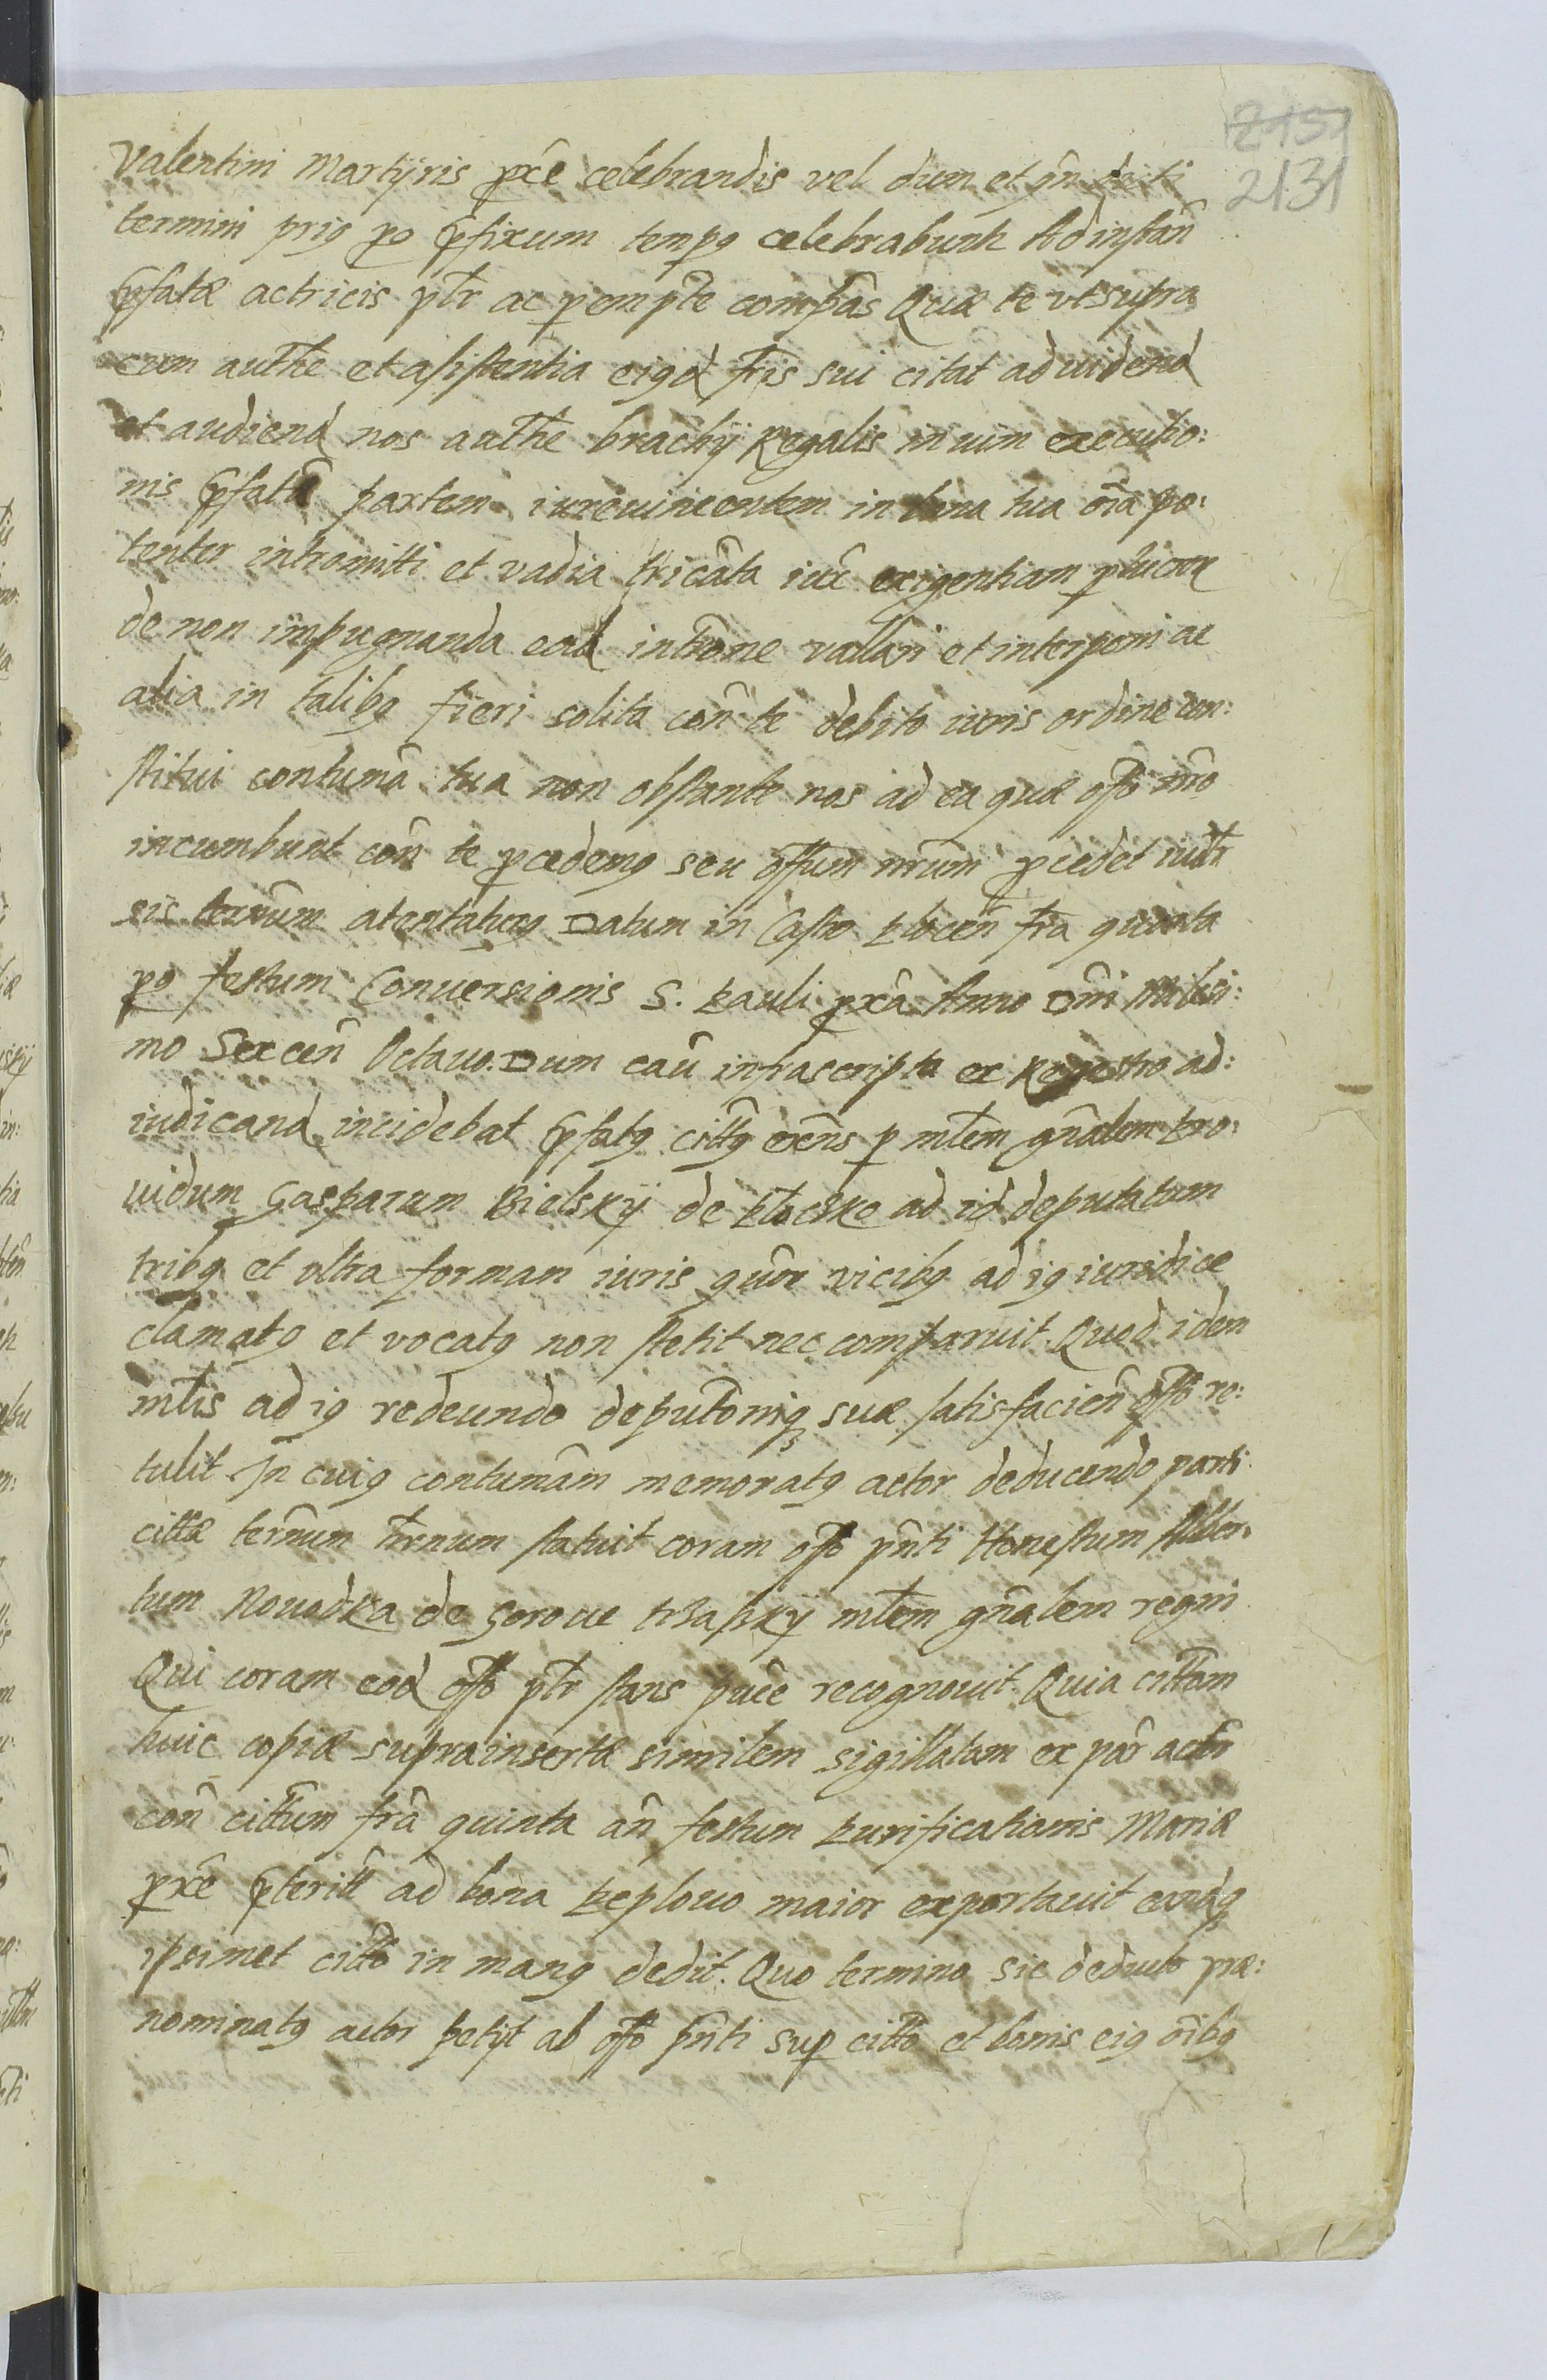 2151
2131
Valentini Martÿris pxẽ celebrandis vel dum et qñ dicti
termini priq po p̃fixum tempq celebrabunt Ad instañ
p̃fatæ actricis pltr ac pempte compãs Quæ te vt supra
cum authe et assistentia eiqd fris sui citat ad uidend
et audiend nos authe brachÿ Regalis in uim executio:
nis p̃fatã partem iureuincentem in bona tua oĩa po:
tenter intromitti et vadia tricãta iux̃ exigentiam
de non impugnanda ead intrõne vallari et interponi ac
alia in talibq fieri solita coñ te debito iuris ordine con:
stitui contumã tua non obstante nos ad ea quæ offo nrõ
incumbunt coñ te pcedemq seu offum nrũm pcedet
sic ternũm atentaturq Datum in Castro Plocen̄ fr̃a quarta
po festum Conuersionis S. Pauli pxã Anno Dñi Milesi:
mo Sexceñ Octauo. Dum caũ infrascripta ex Regestro ad:
iudicand incidebat p̃fatq cittq exẽns p mltem gñalem Pro:
uidum Gasparum Bielskÿ de Plocsko ad id deputatum
tribq et vltra formam iuris quõr vicibq ad iq iuridice
clamatq et vocatq non stetit nec comparuit. Quod idem
mltis ad iq redeundo deputõniq suæ satisfacień offo re:
tulit In cuiq contumãm memoratq actor deducendo parti
cittæ ternũm trnum statuit coram offo pñti Honestum Alber:
tum Nouodka de Gorove mltem gñalem regni
Qui coram eod offo pltr stans pucẽ recognouit Quia cittam
huic copiæ suprainsertæ similem sigillatam ex pãr actõr
coñ cittum fr̃a quinta añ festum Purificationis Mariæ
pxẽ p̃teritt̃ ad bona Peplowo maior exportauit eandq
ipsimet citto in manq dedit. Quo termino sic deducto præ:
nominatq actor petÿt ab offo pñti sup citto et bonis eiq oĩbq